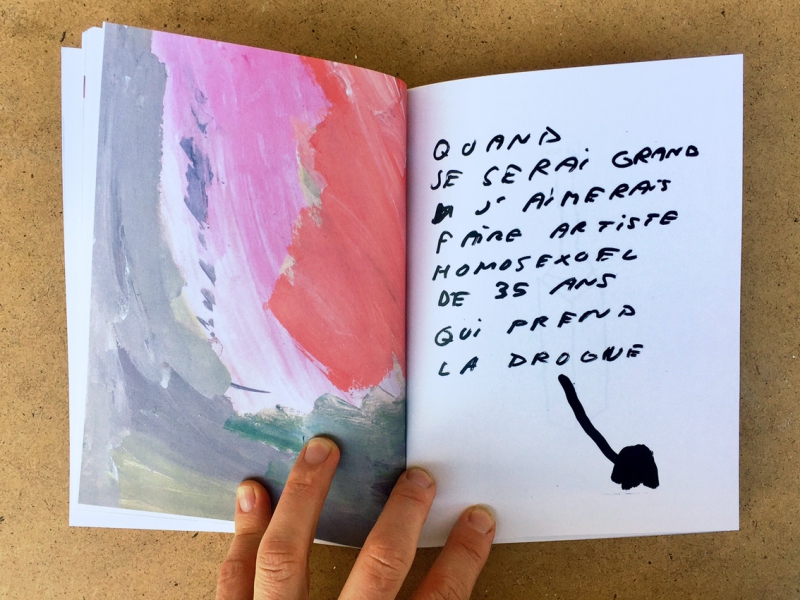 QUAND
JE SERAi GRAND
J' AiMERAiS
FAiRE ARTiSTE
HOMOSEXUEL
DE 35 ANS
QUi PREND
LA DROGUE